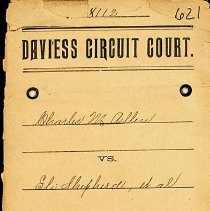 8112
621
DAVIESS CIRCUIT COURT.
Charles M Allen
VS.
Eli Shepherd, et al